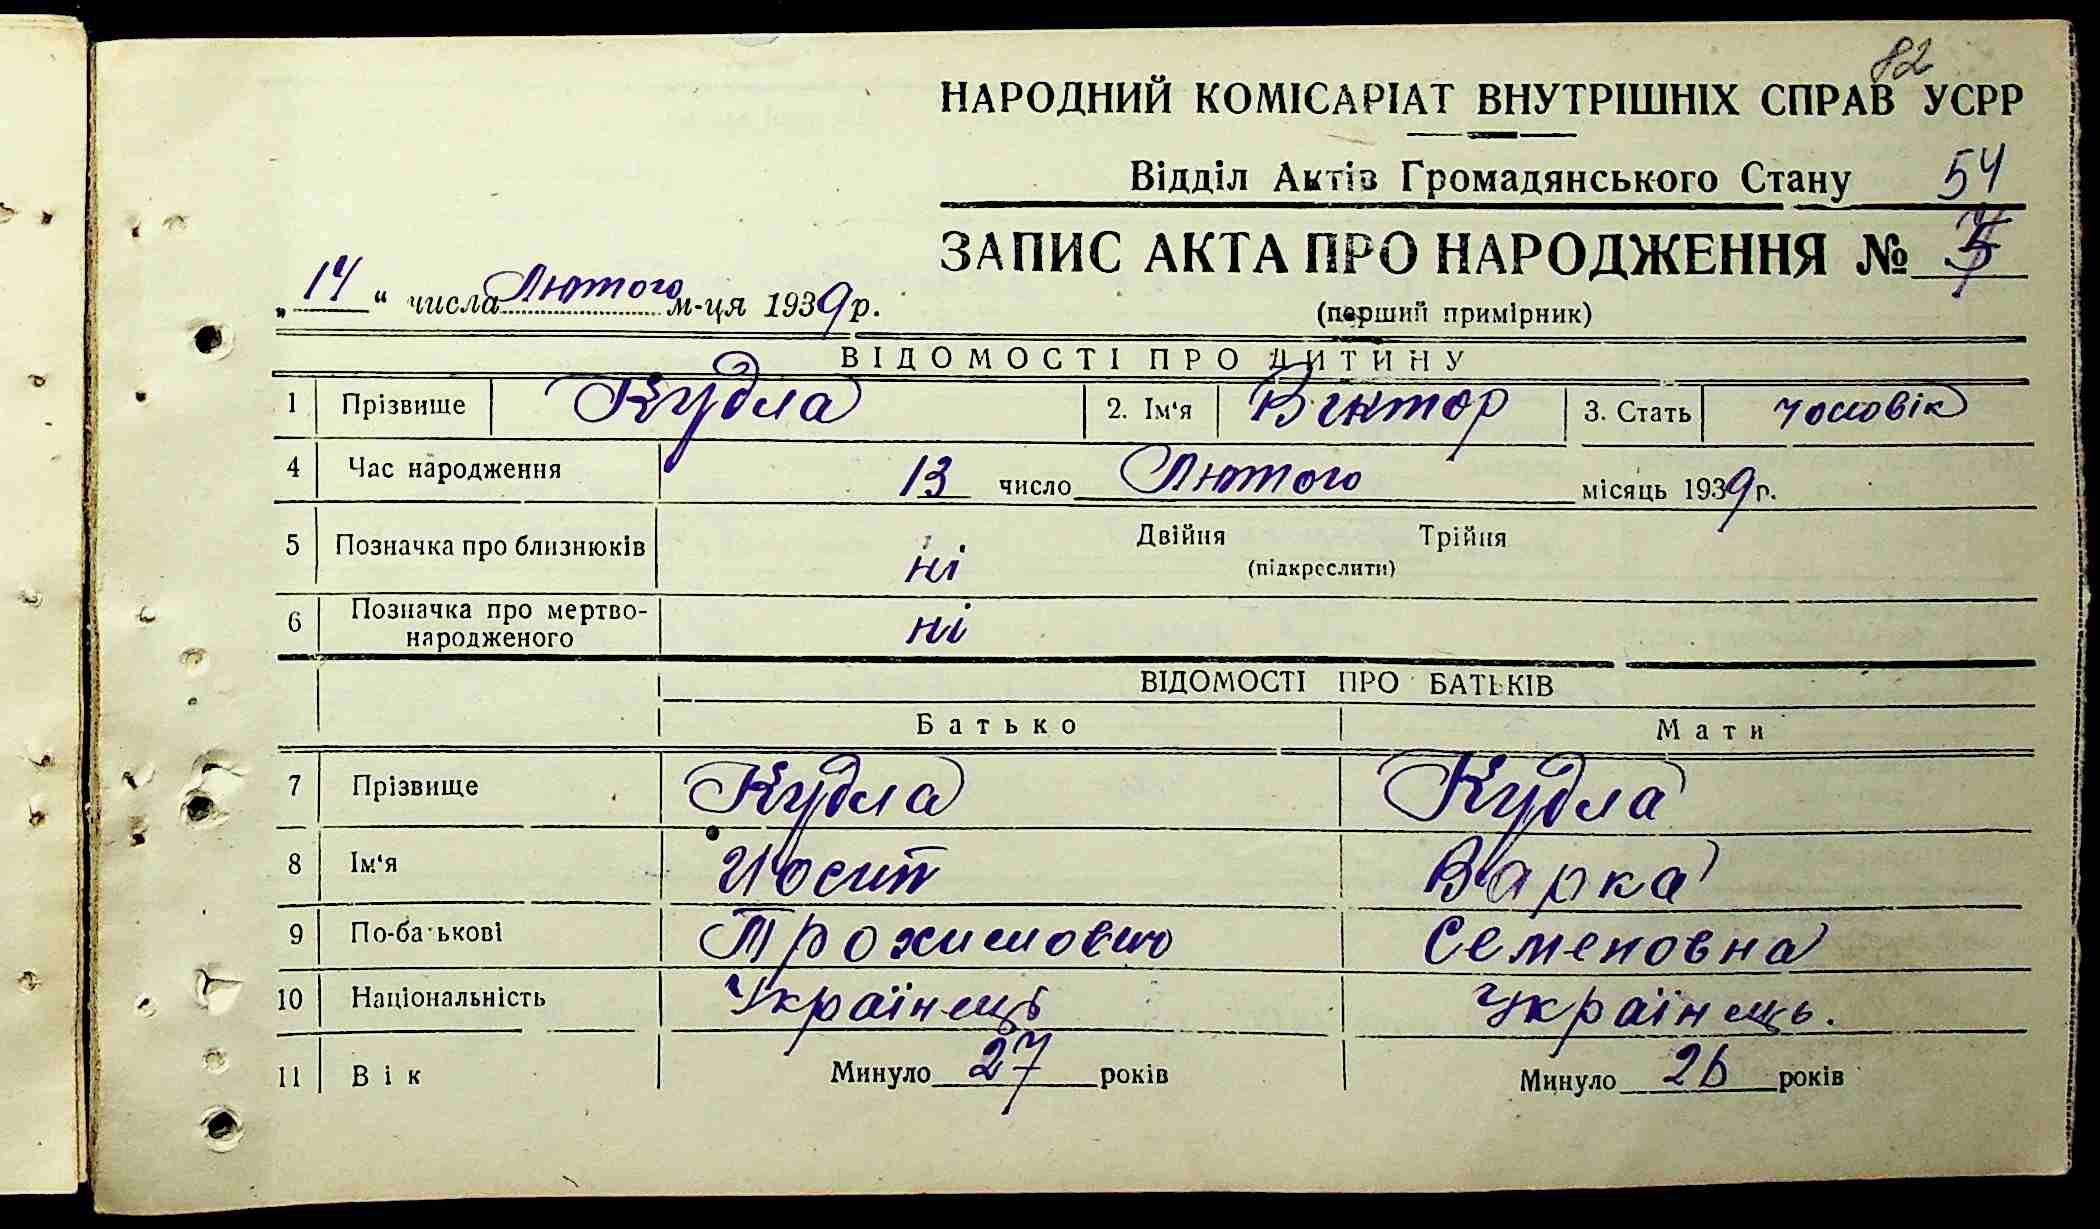 82
НАРОДНИЙ КОМІСАРІАТ ВНУТРІШНІХ СПРАВ УСРР
Відділ Актів Громадянського Стану 54
ЗАПИС АКТА ПРО НАРОДЖЕННЯ №
„14“ числа Лютого м-ця 1939 р.
(перший примірник)
ВІДОМОСТІ ПРО ДИТИНУ
1 Прізвище Кудла 2. Ім‘я Віктор 3. Стать чоловік
4 Час народження 13 число Лютого місяць 1939 р.
5 Позначка про близнюків ні Двійня Трійня
(підкреслити)
6 Позначка про мертво-
народженого ні
ВІДОМОСТІ ПРО БАТЬКІВ
Батько Мати
7 Прізвище Кудла Кудла
8 Ім‘я Иосип Варка
9 По-батькові Трохимович Семеновна
10 Національність Українець Українець.
11 Вік Минуло 27 років Минуло 26 років